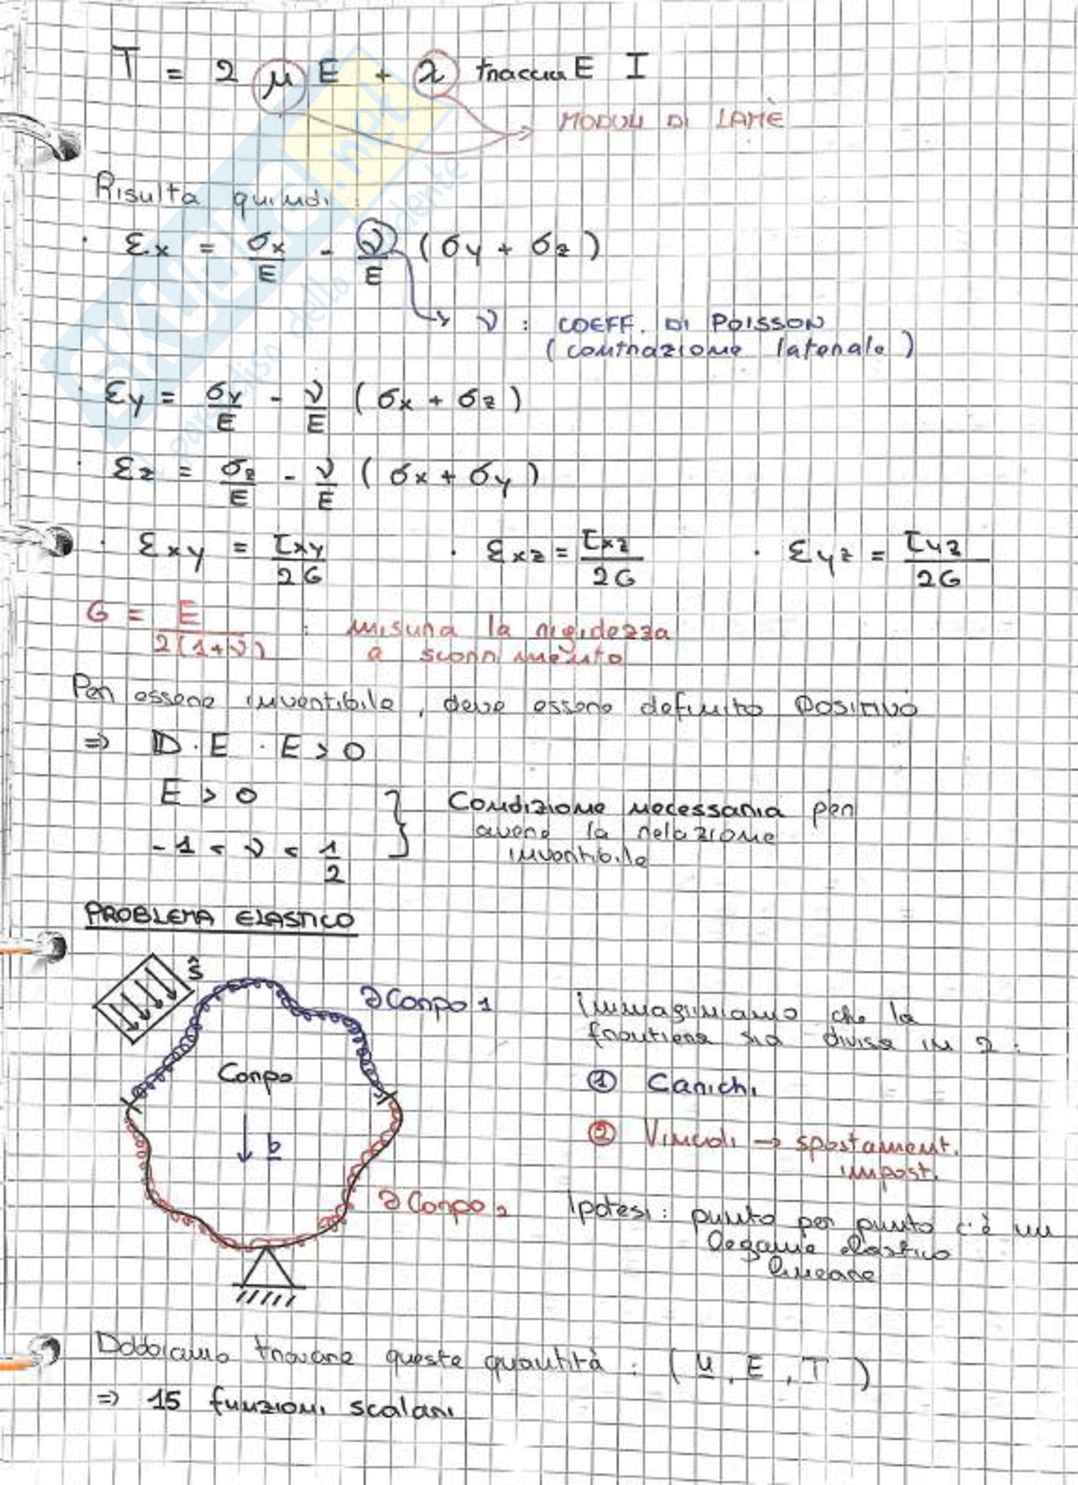 T = 2 μ E + λ traccia E I
MODULI DI LAMÈ
Risulta quindi :
· εx = σx/E - ν/E (σy + σz)
ν : COEFF. DI POISSON
(contrazione laterale)
· εy = σy/E - ν/E (σx + σz)
· εz = σz/E - ν/E (σx + σy)
· εxy = τxy/2G · εxz = τxz/2G · εyz = τyz/2G
G = E/2(1+ν) : misura la rigidezza
a scorrimento
Per essere invertibile, deve essere definito positivo
⇒ D · E · E > 0
E > 0
-1 < ν < 1/2
} Condizione necessaria per
avere la relazione
invertibile
PROBLEMA ELASTICO
ŝ
∂Corpo 1
Corpo
b
∂Corpo 2
Immaginiamo che la
frontiera sia divisa in 2 :
① Carichi
② Vincoli → spostament.
impost.
Ipotesi : punto per punto c'è un
legame elastico
lineare
Dobbiamo trovare queste quantità : (u, E, T)
⇒ 15 funzioni scalari
skuola.net